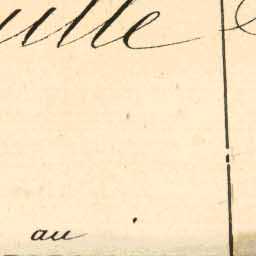 uille
au